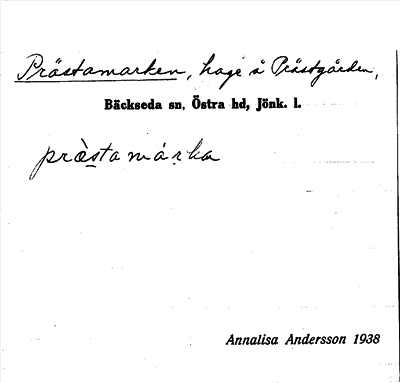 Prästamarken, hage å Prästgården,
Bäckseda sn, Östra hd, Jönk. l.
prὰsta márka
Annalisa Andersson 1938